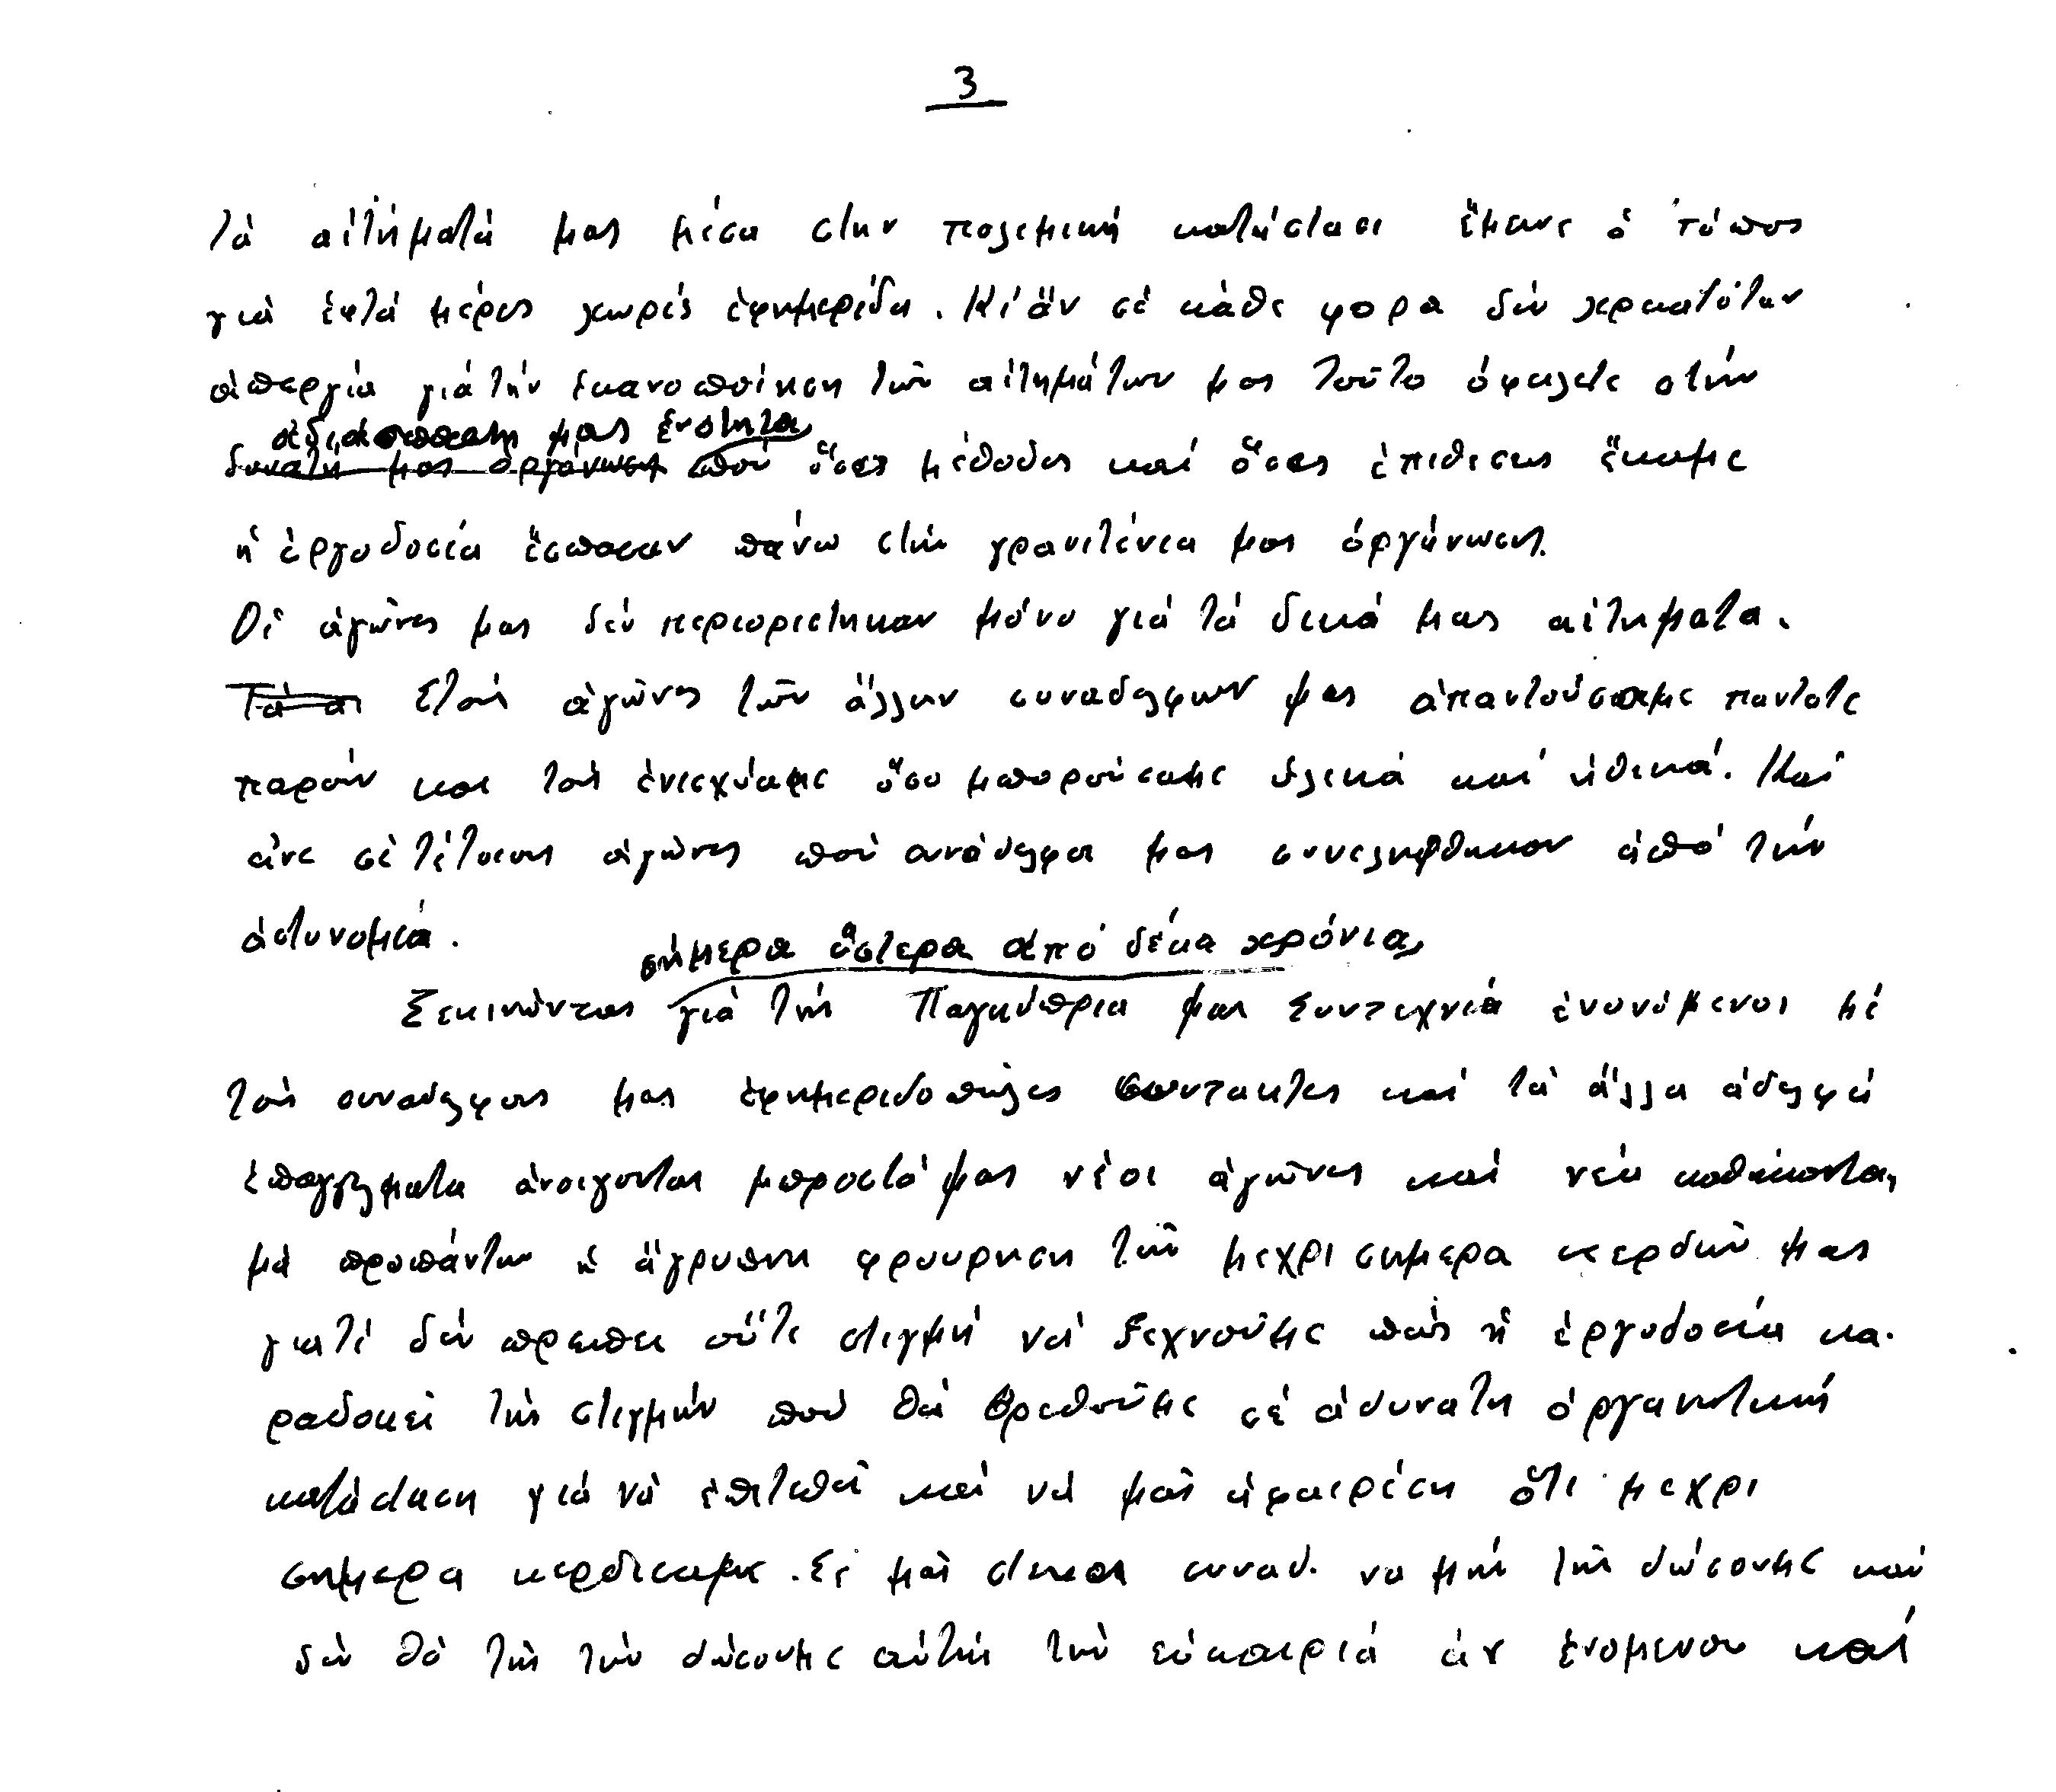 3
τά αἰτήματά μας μέσα στήν πολεμική κατάσταση ἔμεινε ὁ τόπος
γιά ἑφτά μέρες χωρίς ἐφημερίδα. Κι' ἄν σέ κάθε φορα δέν χρειαζόταν
ἀπεργία γιά τήν ἱκανοποίηση τῶν αἰτημάτων μας τοῦτο ὀφείλεται στήν
ἀδιάσπαστη μας ἑνότητα
δυνατή μας ὀργάνωση πού ὅσες μέθοδες καί ὅσες ἐπιθεσεις ἔκαμε
ἡ ἐργοδοσία ἔσπασαν πάνω στήν γρανιτένια μας ὀργάνωση.
Οἱ ἀγῶνες μας δέν περιορίστηκαν μόνο γιά τά δικά μας αἰτηματα.
Τά αι Στούς ἀγῶνες τῶν ἄλλων συναδελφων μας ἀπαντούσαμε παντοτε
παρών και τούς ἐνισχύαμε ὅσο μπορούσαμε ὑλικά καί ἠθικά. Καί
σέ τέτοιους ἀγῶνες πού συνάδελφοι μας συνεληφθηκαν ἀπό τήν
ἀστυνομία.
σήμερα ὕστερα ἀπό δέκα χρόνια
Ξεκινώντας γιά τήν Παγκύπρια μας Συντεχνία ἑνονόμενοι μέ
τούς συναδελφους μας ἐφημεριδοπώλες συντακτες καί τά ἄλλα ἀδελφά
ἐπαγγέλματα ἀνοιγονται μπροστά μας νέοι ἀγῶνες καί νέα καθήκοντα,
μά προπάντων ἡ ἄγρυπνη φρουρηση τῶν μεχρι σημερα κερδῶν μας
γιατί δέν πρεπει οὔτε στιγμή νά ξεχνοῦμε πώς ἡ ἐργοδοσία κα-
ραδοκεῖ τήν στιγμήν πού θά βρεθοῦμε σέ ἀδυνατη ὀργανωτική
κατάσταση γιά νά ἐπιτεθεῖ καί νά μᾶς ἀφαιρέση ὅτι μεχρι
σημερα κερδισαμε. Σέ μᾶς συναδ. να μήν τῆς δώσουμε καί
δέν θά τῆς τήν δώσουμε αὐτήν τήν εὐκαιρία ἄν καί